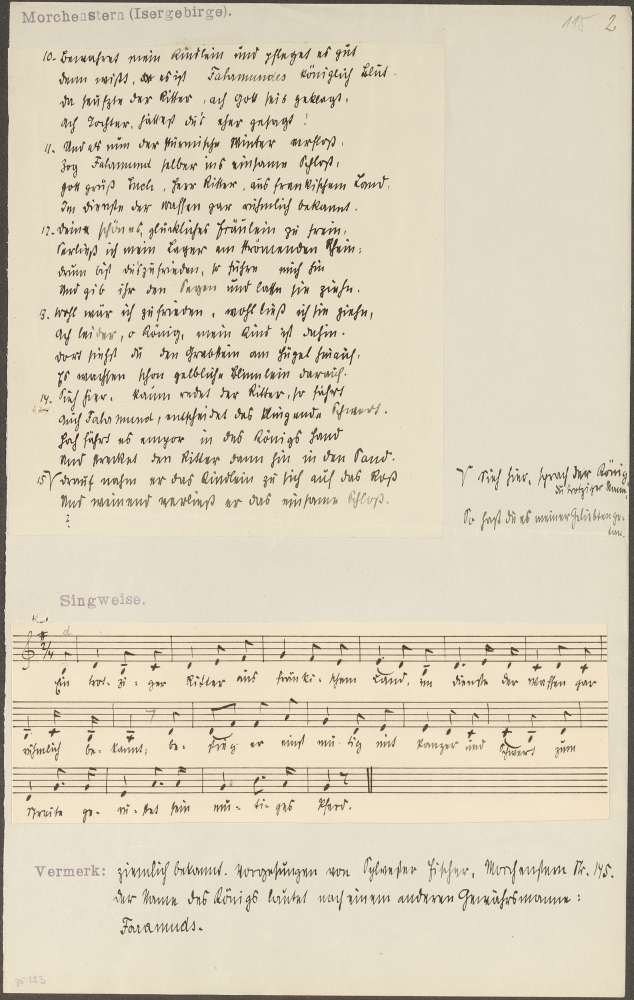 Morchenstern (Isergebirge).
115 2
10. Bewahret mein Kindlein und pfleget es gut
denn wißt, es ist Faramundes königlich Blut.
da seufzte der Ritter, ach Gott seis geklagt,
ach Tochter, hättest du's eher gesagt!
11. Und als nun der stürmische Winter verfloß,
Zog Faramund selber ins einsame Schloß.
gott grüß Euch, Herr Ritter, aus frenkischem Land,
Im Dienste der Waffen gar rühmlich bekannt.
12. Deine schönes, glückliches Fräulein zu frein,
Verließ ich mein Lager am strömenden Rhein;
drum bist du zufrieden, so führe mich hin
Und gib ihr den Segen und lasse sie ziehn.
13. Wohl wär ich zufrieden, wohl ließ ich sie ziehn,
Ach leider, o König, mein Kind ist dahin.
dort siehst du den Grabstein am Hügel hinauf,
Es wachsen schon gelbliche Blümlein darauf.
14. Sieh hier. kaum redet der Ritter, so fährt
Auch Faramund, entscheidet das klingende Schwert.
Hoch fährt es empor in des Königs Hand
Und strecket den Ritter dann hin in den Sand.
15. V drauf nahm er das Kindlein zu sich auf das Roß
Und weinend verließ er das einsame Schloß.
V Sieh hier, sprach der König,
du trotziger Mann,
So hast du es meiner Geliebten ge-
tan.
Singweise.
Ein tro- zi- ger Ritter aus fränki- schem Land, im dienste der Waffen gar
rühmlich be- kannt; be- stieg er einst mu- tig mit Panzer und Schwert zum
Streite ge- rü- stet sein mu- ti- ges Pferd.
Vermerk: ziemlich bekannt. Vorgesungen von Sylvester Fischer, Morchenstern Nr. 145.
der Name des Königs lautet nach einem anderen Gewährsmanne:
Faramuds.